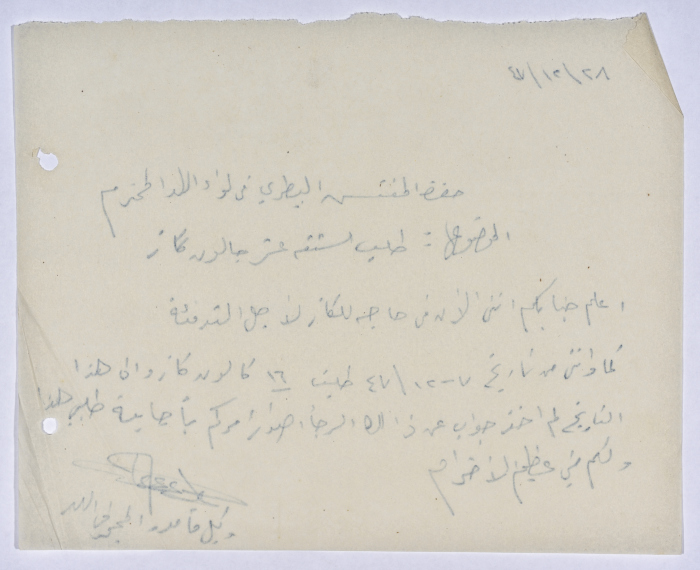 ٤٧/١٢/٢٨
حضرة المفتش البيطري في لواء اللد المحترم
الموضوع : طلب ستة عشر جالون كاز
اعلم جنابكم انني الآن في حاجة للكاز لأجل التدفئة
كما وانني من تاريخ ٧-١٢-٤٧ طلبت ١٦ كالون كاز والى هذا
التاريخ لم اخذ جواب عن ذالك الرجا اصدار امركم بأجابة طلبي هذا
ولكم مني عظيم الاحترام
وكيل مأمور الحجر في اللد